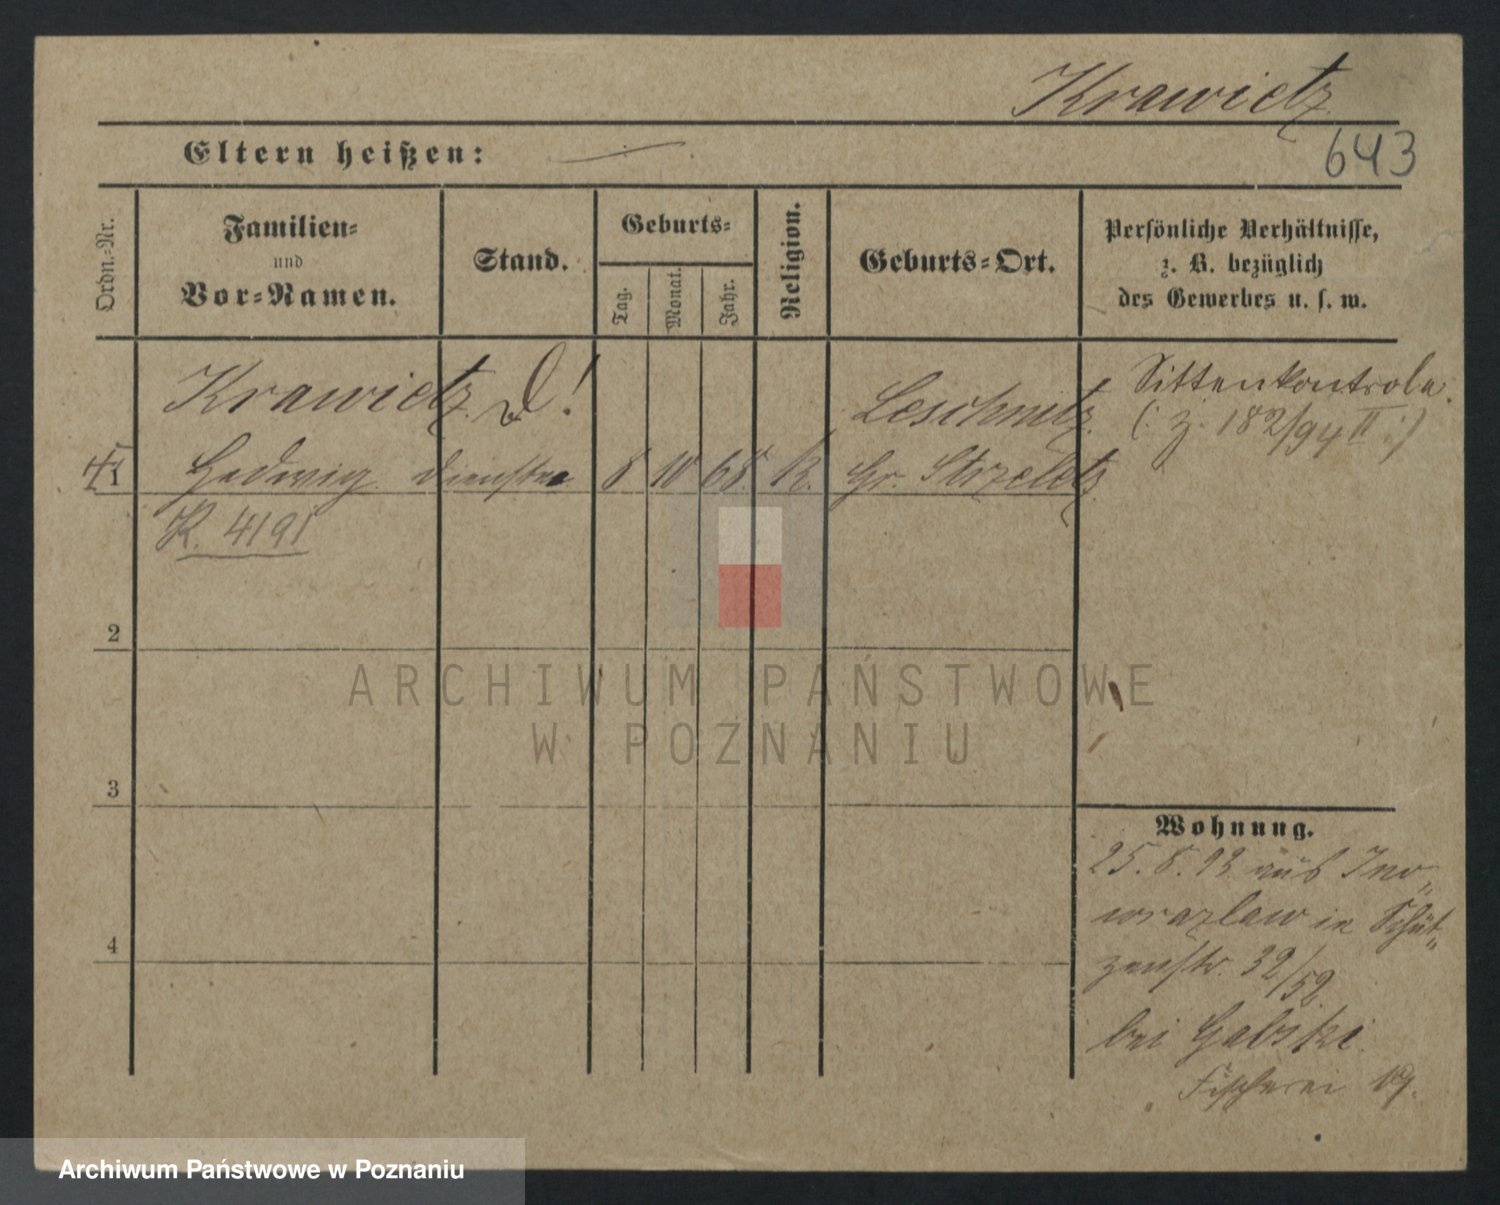 Krawietz
643
Eltern heißen: —
Ordn.-Nr.
Familien-
und
Vor-Namen.
Stand.
Geburts-
Tag.
Monat.
Jahr.
Religion.
Geburts-Ort.
Persönliche Verhältnisse,
z. B. bezüglich
des Gewerbes u. s. w.
Krawietz D!
Leschnitz
Sittenkontrole.
(: Z. 182/94 II :)
1 Hedwig 8 10 68. K. Gr. Strzeletz
K. 4191
2
3
4
Wohnung.
25. 8. 93. aus Ino-
wrazlaw in Schüt-
zenstr. 32/52.
bei Gabski
Fischerei 19.
ARCHIWUM PAŃSTWOWE
W POZNANIU
Archiwum Państwowe w Poznaniu